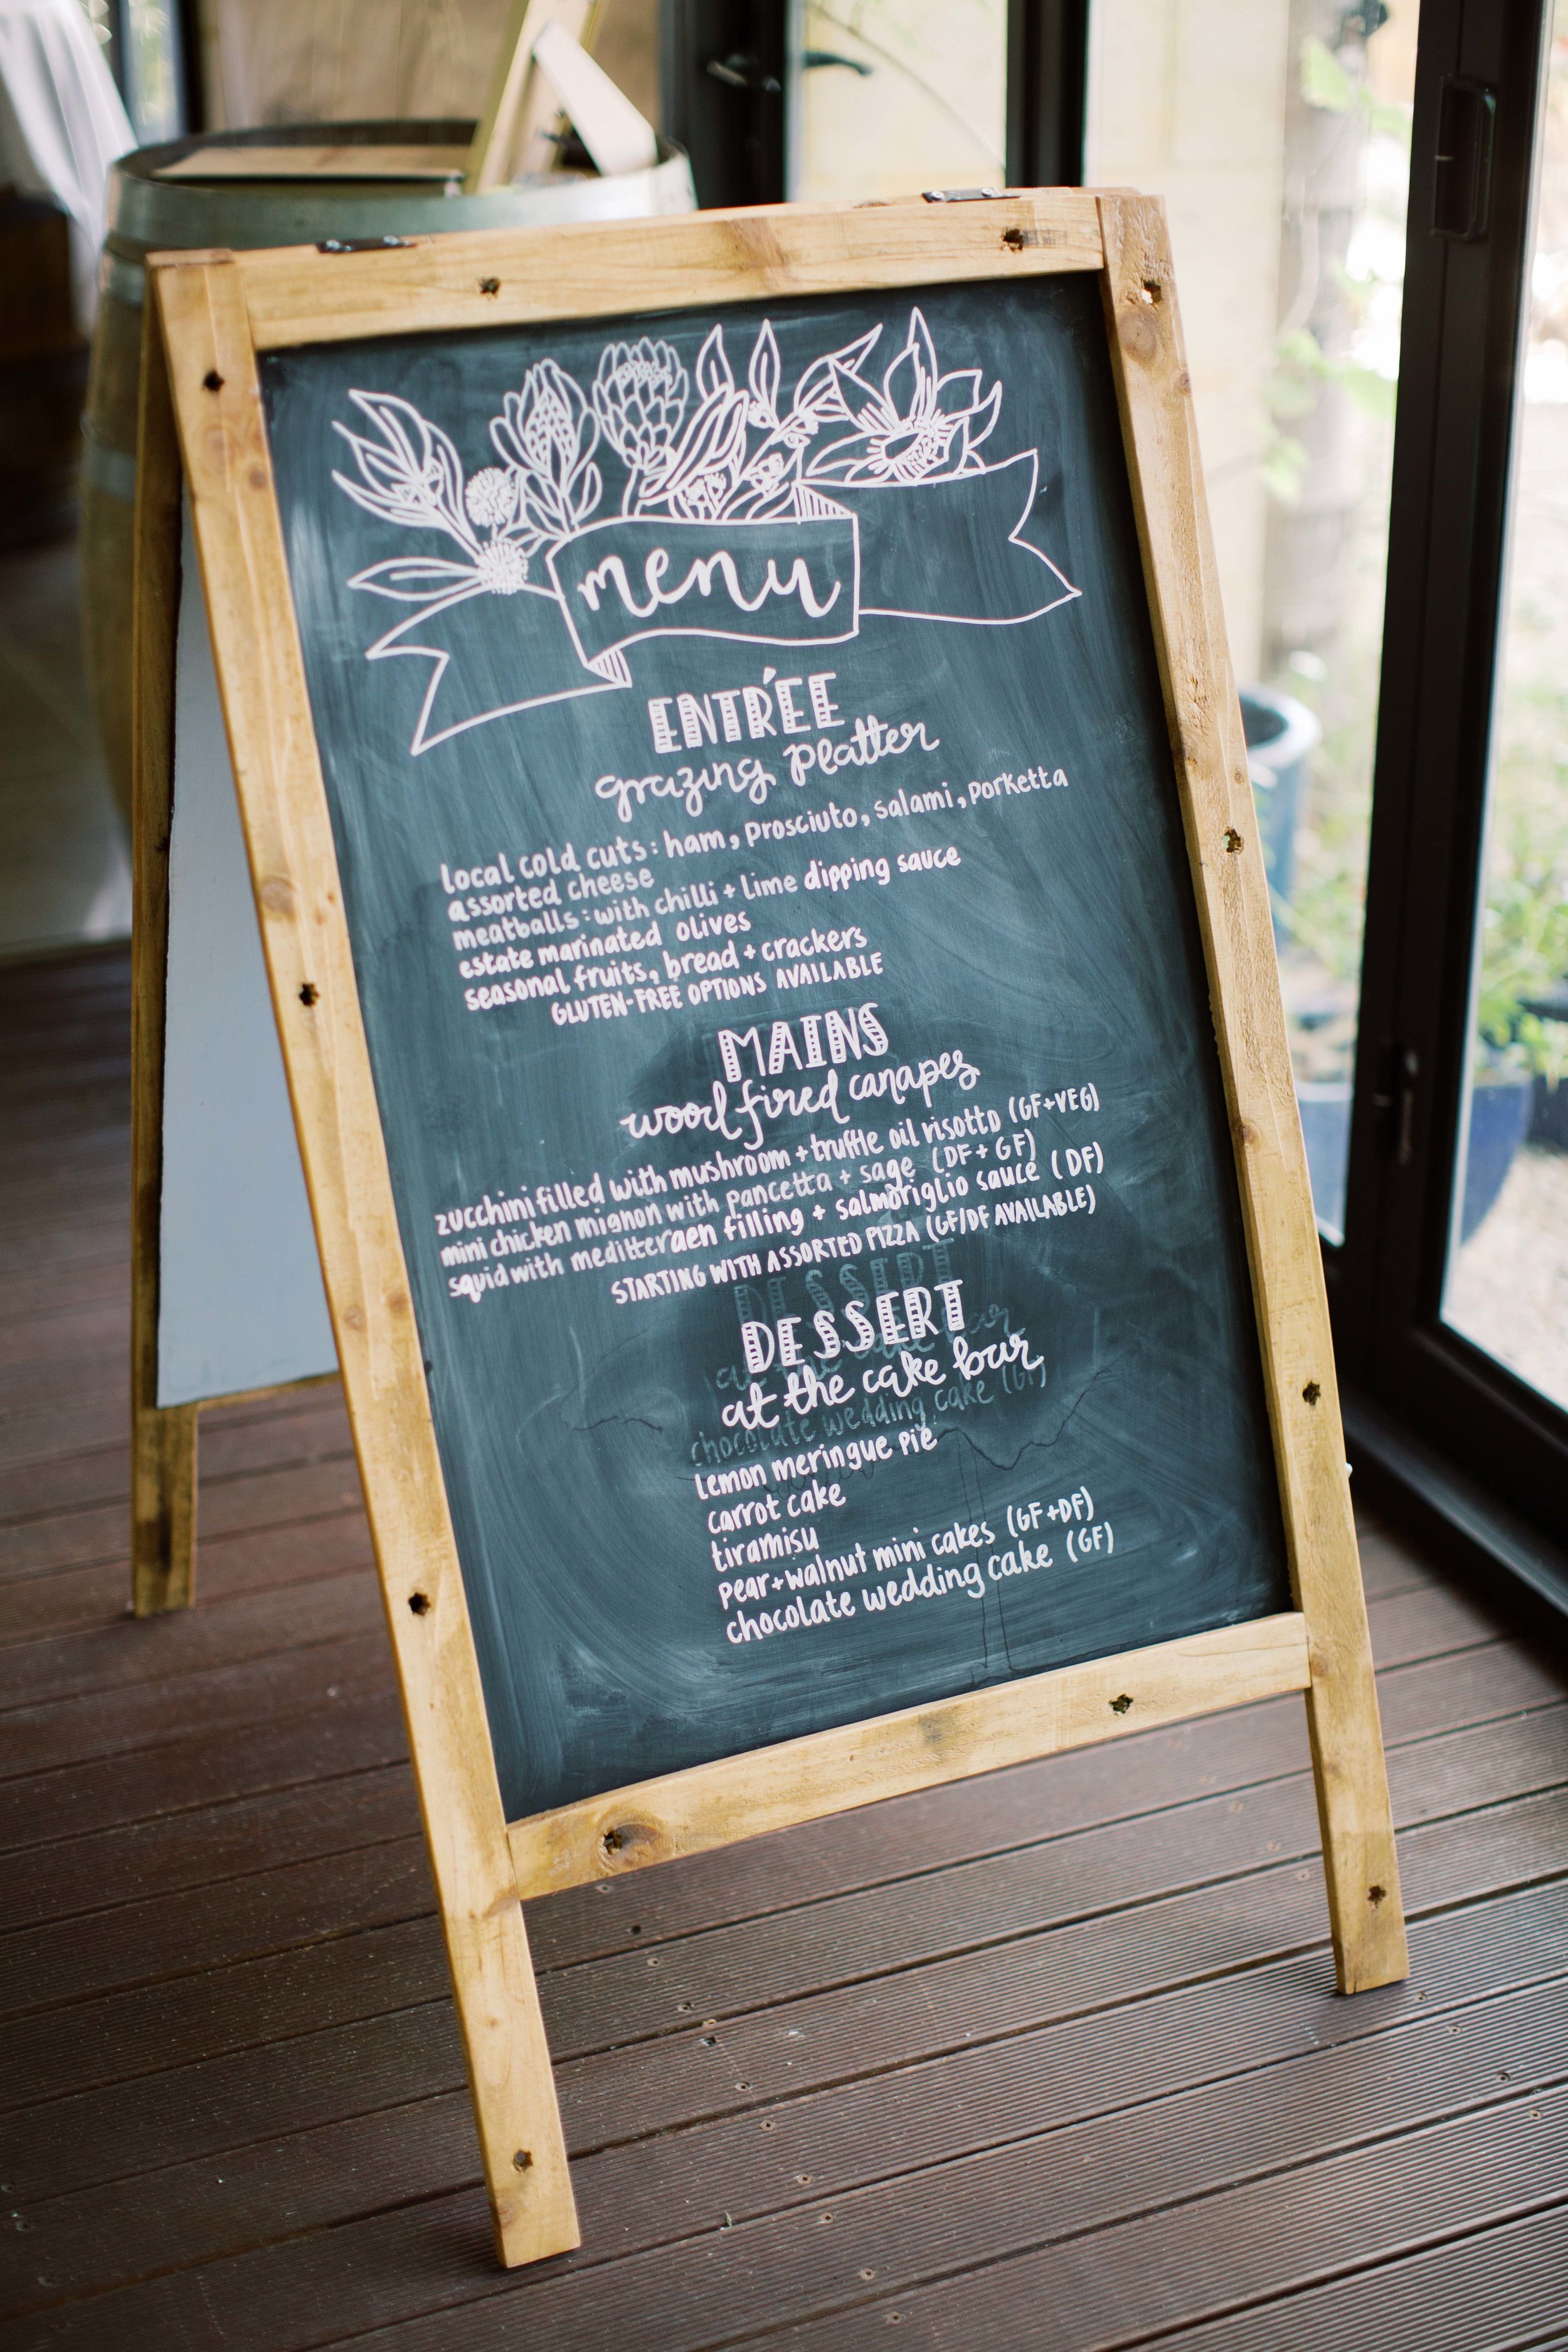 menu
ENTRÉE
grazing platter
local cold cuts: ham, prosciuto, salami, porketta
assorted cheese
meatballs: with chilli + lime dipping sauce
estate marinated olives
seasonal fruits, bread + crackers
GLUTEN-FREE OPTIONS AVAILABLE
MAINS
wood fired canapes
zucchini filled with mushroom + truffle oil risotto (GF+VEG)
mini chicken mignon with pancetta + sage (DF + GF)
squid with meditteraen filling + salmoriglio sauce (DF)
STARTING WITH ASSORTED PIZZA (GF/DF AVAILABLE)
DESSERT
DESSERT
at the cake bar
at the cake bar
chocolate wedding cake (GF)
lemon meringue pie
carrot cake
tiramisu
pear+walnut mini cakes (GF+DF)
chocolate wedding cake (GF)